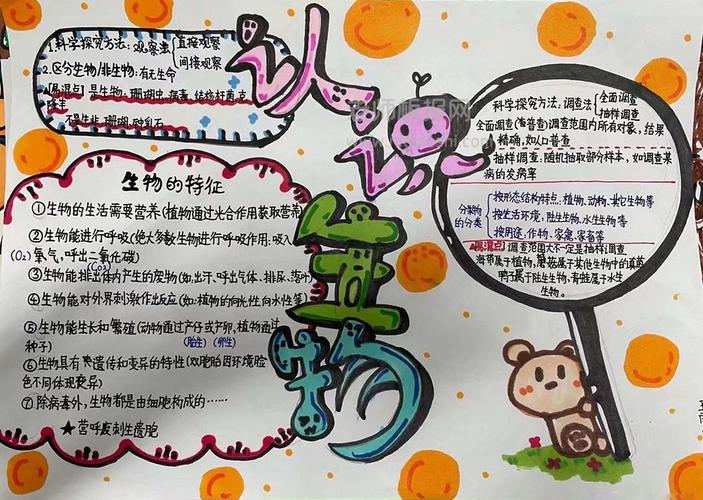 认识
生物
1.科学探究方法:观察法{直接观察
间接观察
2.区分生物/非生物:有无生命
易混点 是生物:珊瑚虫,病毒,结核杆菌,
不是生物:珊瑚,钟乳石
生物的特征
①生物的生活需要营养(植物通过光合作用获取营养
②生物能进行呼吸(绝大多数生物进行呼吸作用:吸入
(O₂)氧气,呼出二氧化碳)
(CO₂)
③生物能排出体内产生的废物(如:出汗、呼出气体、排尿、落叶
④生物能对外界刺激作出反应(如:植物的向光性,向水性等)
⑤生物能生长和繁殖(动物通过产仔或产卵,植物通过
种子) (胎生) (卵生)
⑥生物具有遗传和变异的特性(双胞胎因环境脸
色不同体现变异)
⑦除病毒外,生物都是由细胞构成的……
★营
科学探究方法,调查法{全面调查
抽样调查
全面调查(有普查)调查范围内所有对象,结果
精确,如人口普查
抽样调查:随机抽取部分样本,如调查某
病的发病率
分类
的分类
按形态结构特点,植物、动物、其它生物等
按生活环境,陆生生物、水生生物等
按用途,作物、家禽、家畜等
易混点 调查范围大不一定是抽样调查
海带属于植物,蘑菇属于其他生物中的真菌
鸭子属于陆生生物,青蛙属于水生
生物。